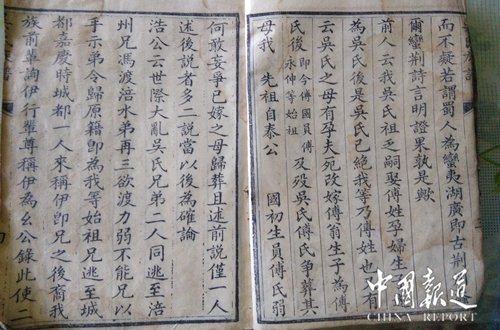 而不疑若謂蜀人為蠻夷湖廣即古荆
爾蠻荆詩言明證果孰是歟
前人云我吳氏祖乏嗣娶傅姓孕婦生子
為吳氏後是吳氏已絕我等乃傅姓也又有
云吳氏之母有孕夫死改嫁傅翁生子為傅
氏後 即今傅國員傅永伸等始祖 及殁吳氏傅氏爭葬其
母我 先祖自泰公 國初生員傅氏弱
何敢妄爭已嫁之母歸葬且述前說僅一人
述後說者多二說當以後為確論
浩公云世際大亂吳氏兄弟二人同逃至涪
州兄馮渡涪水弟再三欲渡力弱不能兄以
手示弟令歸原籍即為我等始祖兄逃至城
都嘉慶時城都一人來稱伊即兄之後裔我
族前輩詢伊行輩尊稱伊為幺公錄此使二
中國報道
CHINA REPORT